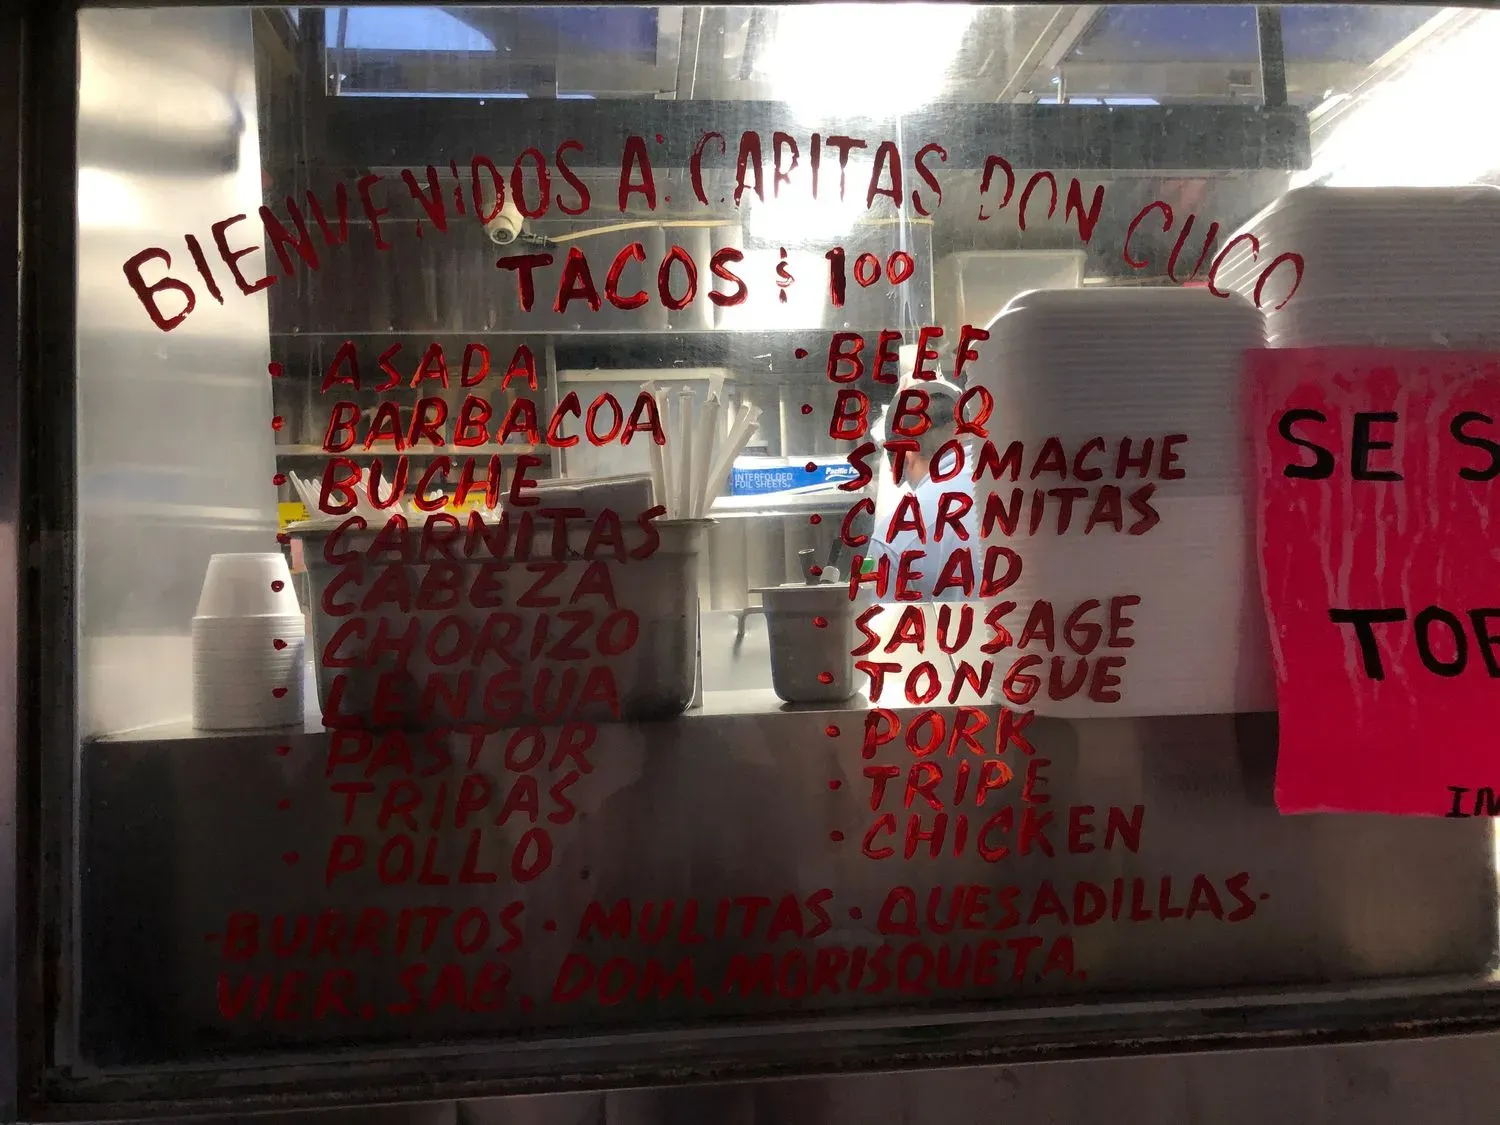 BIENVENIDOS A: CARITAS DON CUCO
TACOS $ 1.00
• ASADA
• BARBACOA
• BUCHE
CARNITAS
• CABEZA
• CHORIZO
• LENGUA
• PASTOR
• TRIPAS
• POLLO
• BEEF
• BBQ
• STOMACHE
• CARNITAS
• HEAD
• SAUSAGE
• TONGUE
• PORK
• TRIPE
• CHICKEN
-BURRITOS • MULITAS • QUESADILLAS-
VIER. SAB. DOM. MORISQUETA.
INTERFOLDED
FOIL SHEETS
Pacific
SE S
TO
IN